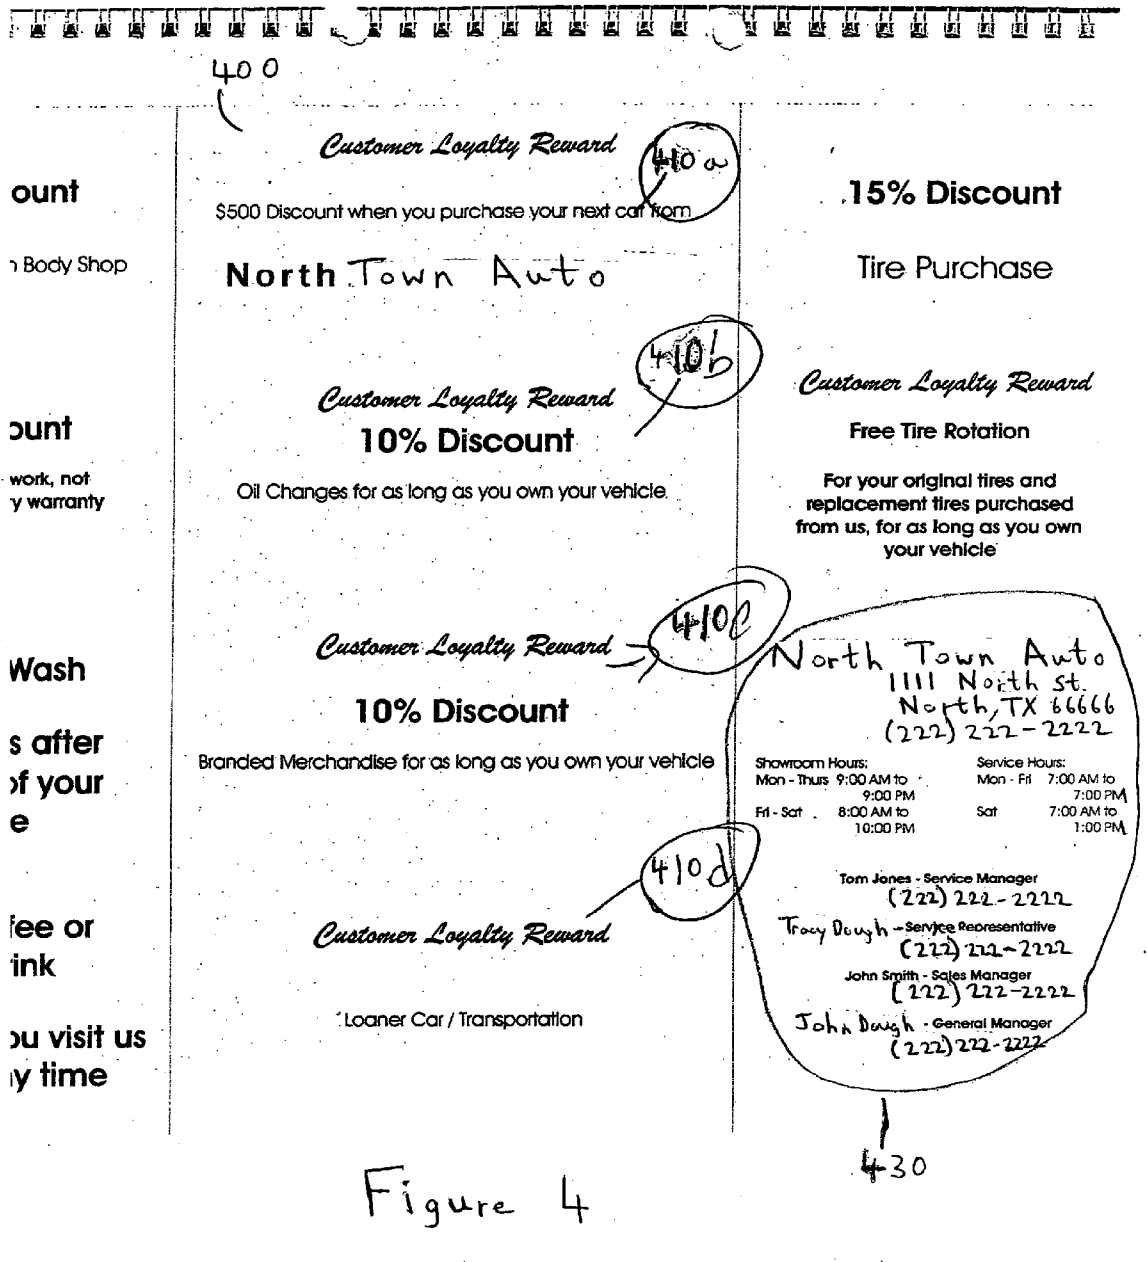 400
ount
n Body Shop
ount
work, not
y warranty
Wash
s after
of your
e
fee or
rink
ou visit us
ny time
Customer Loyalty Reward
410a
$500 Discount when you purchase your next car from
North Town Auto
410b
Customer Loyalty Reward
10% Discount
Oil Changes for as long as you own your vehicle.
410c
Customer Loyalty Reward
10% Discount
Branded Merchandise for as long as you own your vehicle
410d
Customer Loyalty Reward
Loaner Car / Transportation
15% Discount
Tire Purchase
Customer Loyalty Reward
Free Tire Rotation
For your original tires and
replacement tires purchased
from us, for as long as you own
your vehicle
North Town Auto
1111 North st.
North, TX 66666
(222) 222-2222
Showroom Hours: Service Hours:
Mon - Thurs 9:00 AM to Mon - Fri 7:00 AM to
9:00 PM 7:00 PM
Fri - Sat 8:00 AM to Sat 7:00 AM to
10:00 PM 1:00 PM
Tom Jones - Service Manager
(222) 222-2222
Tracy Dough - Service Representative
(222) 222-2222
John Smith - Sales Manager
(222) 222-2222
John Dough - General Manager
(222) 222-2222
430
Figure 4